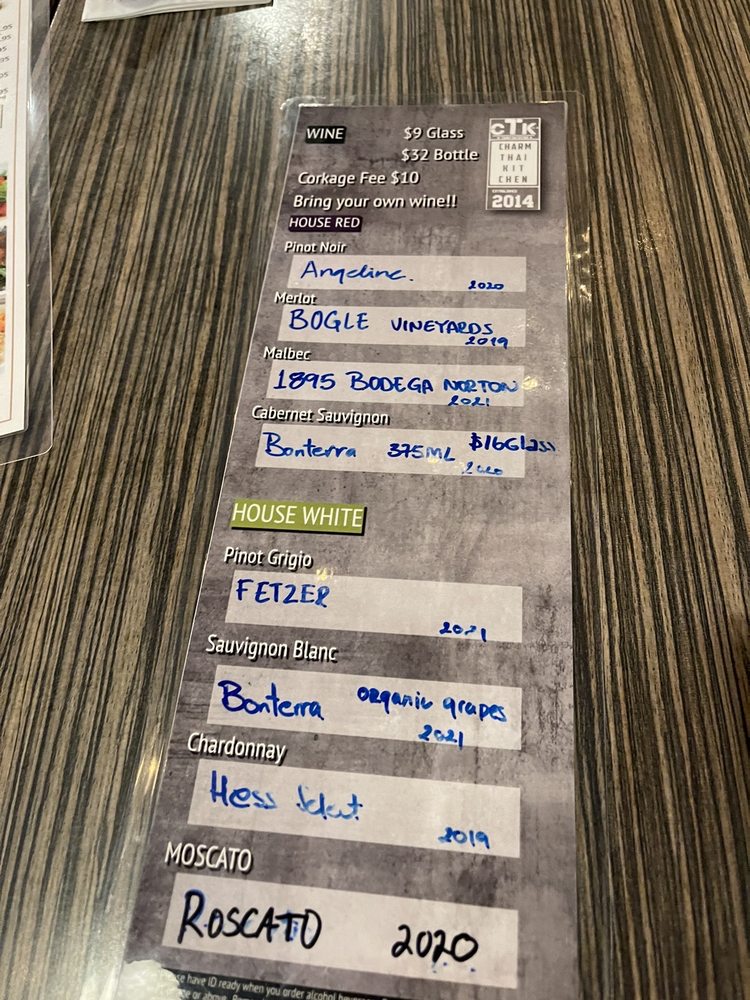 WINE
$9 Glass
$32 Bottle
Corkage Fee $10
Bring your own wine!!
CTK
CHARM
THAI
KIT
CHEN
ESTABLISHED
2014
HOUSE RED
Pinot Noir
Angeline.
2020
Merlot
BOGLE VINEYARDS
2019
Malbec
1895 BODEGA NORTON
2021
Cabernet Sauvignon
Bonterra 375ML $16Glass
2020
HOUSE WHITE
Pinot Grigio
FETZER
2021
Sauvignon Blanc
Bonterra organic grapes
2021
Chardonnay
Hess Select
2019
MOSCATO
ROSCATO 2020
se have ID ready when you order alcohol
or above.